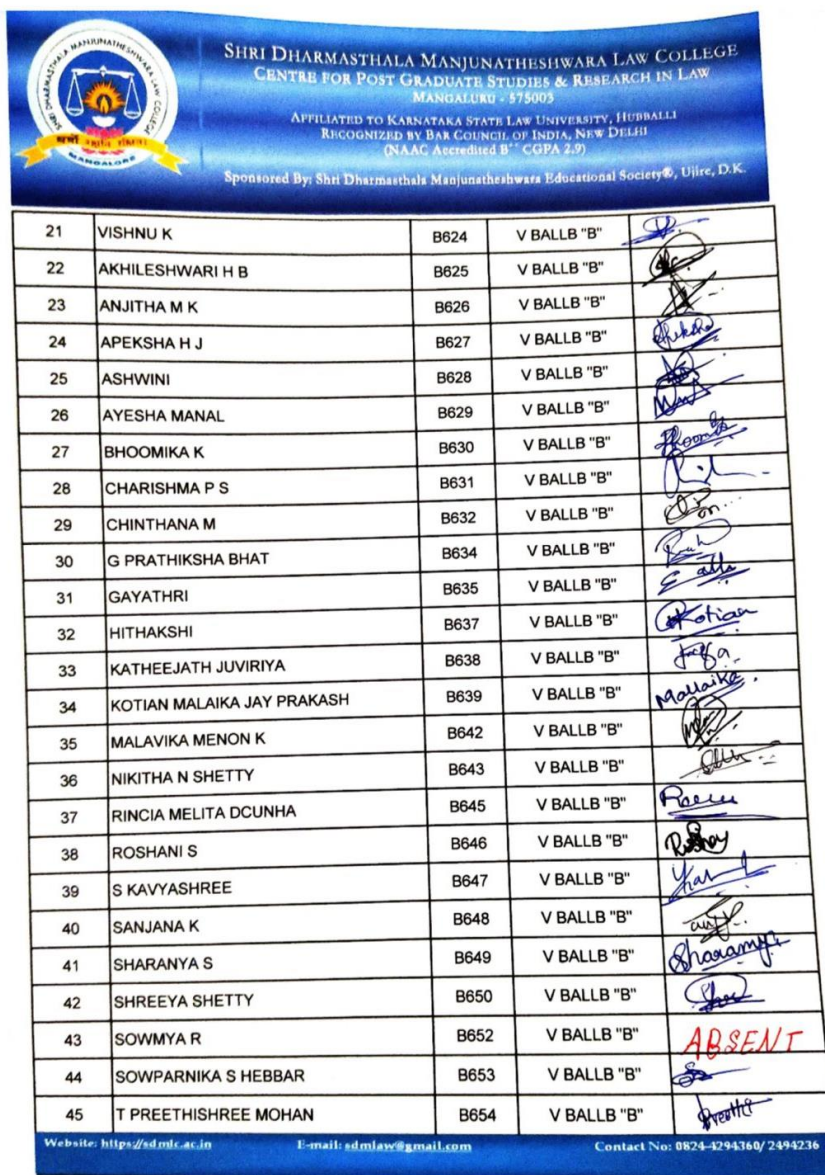 SHRI DHARMASTHALA MANJUNATHESHWARA LAW COLLEGE
CENTRE FOR POST GRADUATE STUDIES & RESEARCH IN LAW
MANGALURU - 575003
AFFILIATED TO KARNATAKA STATE LAW UNIVERSITY, HUBBALLI
RECOGNIZED BY BAR COUNCIL OF INDIA, NEW DELHI
(NAAC Accredited B++ CGPA 2.9)
Sponsored By: Shri Dharmasthala Manjunatheshwara Educational Society®, Ujire, D.K.
SHRI DHARMASTHALA MANJUNATHESHWARA LAW COLLEGE
MANGALORE
21 VISHNU K B624 V BALLB "B"
22 AKHILESHWARI H B B625 V BALLB "B"
23 ANJITHA M K B626 V BALLB "B"
24 APEKSHA H J B627 V BALLB "B"
25 ASHWINI B628 V BALLB "B"
26 AYESHA MANAL B629 V BALLB "B"
27 BHOOMIKA K B630 V BALLB "B"
28 CHARISHMA P S B631 V BALLB "B"
29 CHINTHANA M B632 V BALLB "B"
30 G PRATHIKSHA BHAT B634 V BALLB "B"
31 GAYATHRI B635 V BALLB "B"
32 HITHAKSHI B637 V BALLB "B" Kotian
33 KATHEEJATH JUVIRIYA B638 V BALLB "B"
34 KOTIAN MALAIKA JAY PRAKASH B639 V BALLB "B" Mallaika
35 MALAVIKA MENON K B642 V BALLB "B"
36 NIKITHA N SHETTY B643 V BALLB "B"
37 RINCIA MELITA DCUNHA B645 V BALLB "B"
38 ROSHANI S B646 V BALLB "B"
39 S KAVYASHREE B647 V BALLB "B"
40 SANJANA K B648 V BALLB "B"
41 SHARANYA S B649 V BALLB "B" Sharamya
42 SHREEYA SHETTY B650 V BALLB "B"
43 SOWMYA R B652 V BALLB "B" ABSENT
44 SOWPARNIKA S HEBBAR B653 V BALLB "B"
45 T PREETHISHREE MOHAN B654 V BALLB "B"
Website: https://sdmlc.ac.in E-mail: sdmlaw@gmail.com Contact No: 0824-4294360/ 2494236